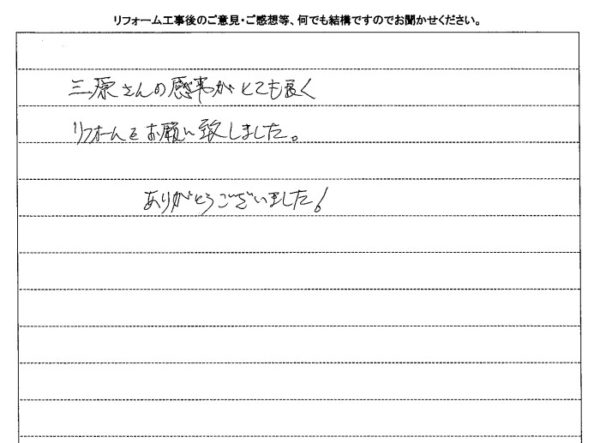 リフォーム工事後のご意見・ご感想等、何でも結構ですのでお聞かせください。
三原さんの感事がとても良く
リフォームをお願い致しました。
ありがとうございました!